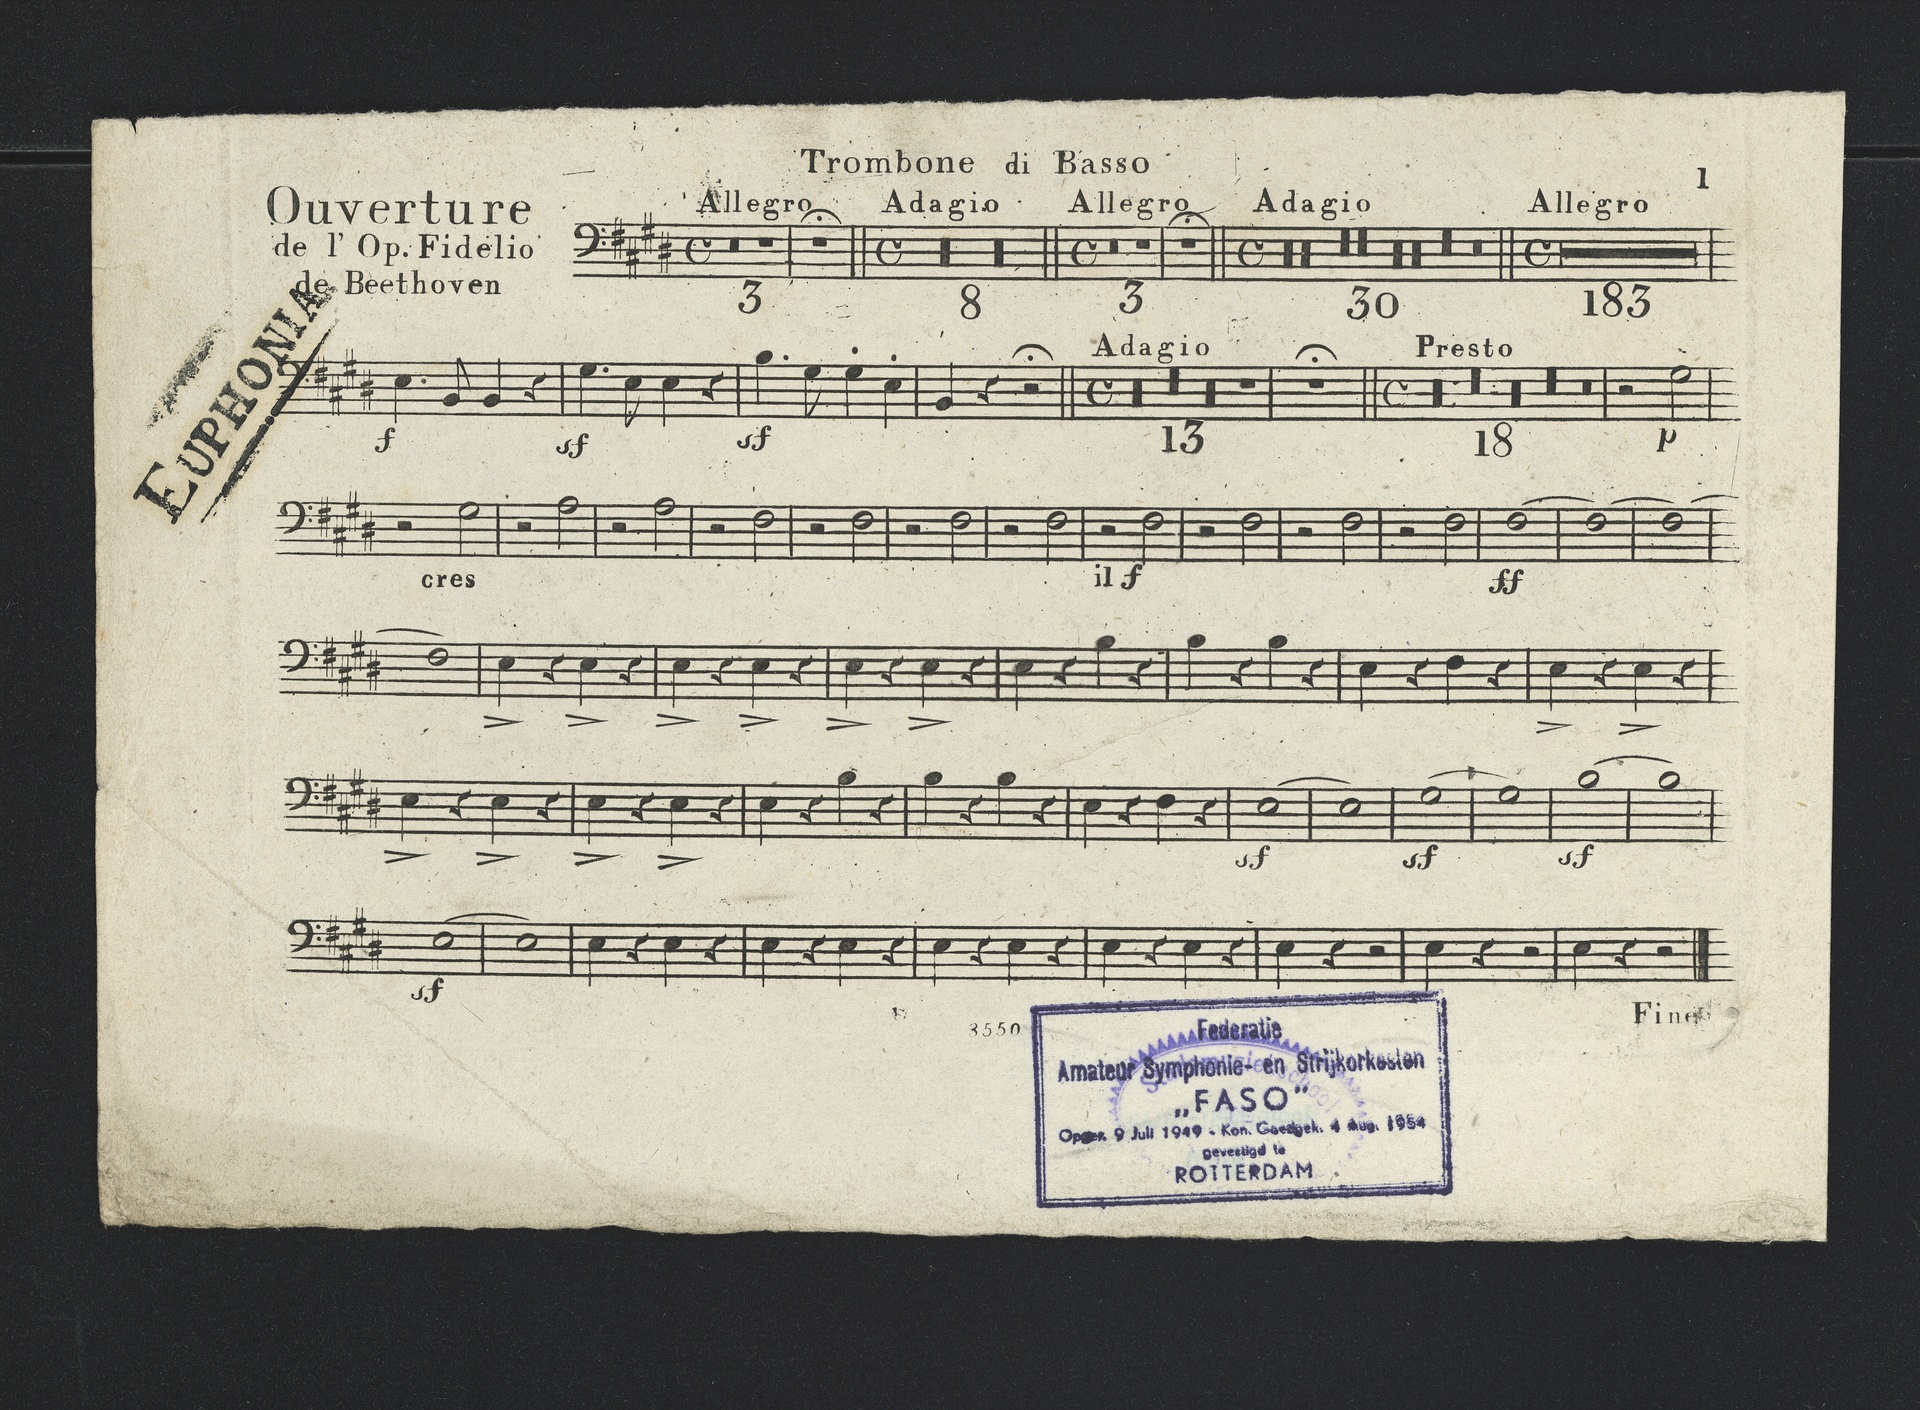 Trombone di Basso
1
Ouverture
de l' Op. Fidelio
de Beethoven
Allegro Adagio Allegro Adagio Allegro
3 8 3 30 183
EUPHONIA
Adagio Presto
f sf sf 13 18 p
cres il f ff
sf sf sf
sf
Fine
3550
Federatie
Amateur Symphonie- en Strijkorkesten
„FASO”
Opger. 9 Juli 1949 - Kon. Goedgek. 4 Aug. 1954
gevestigd te
ROTTERDAM